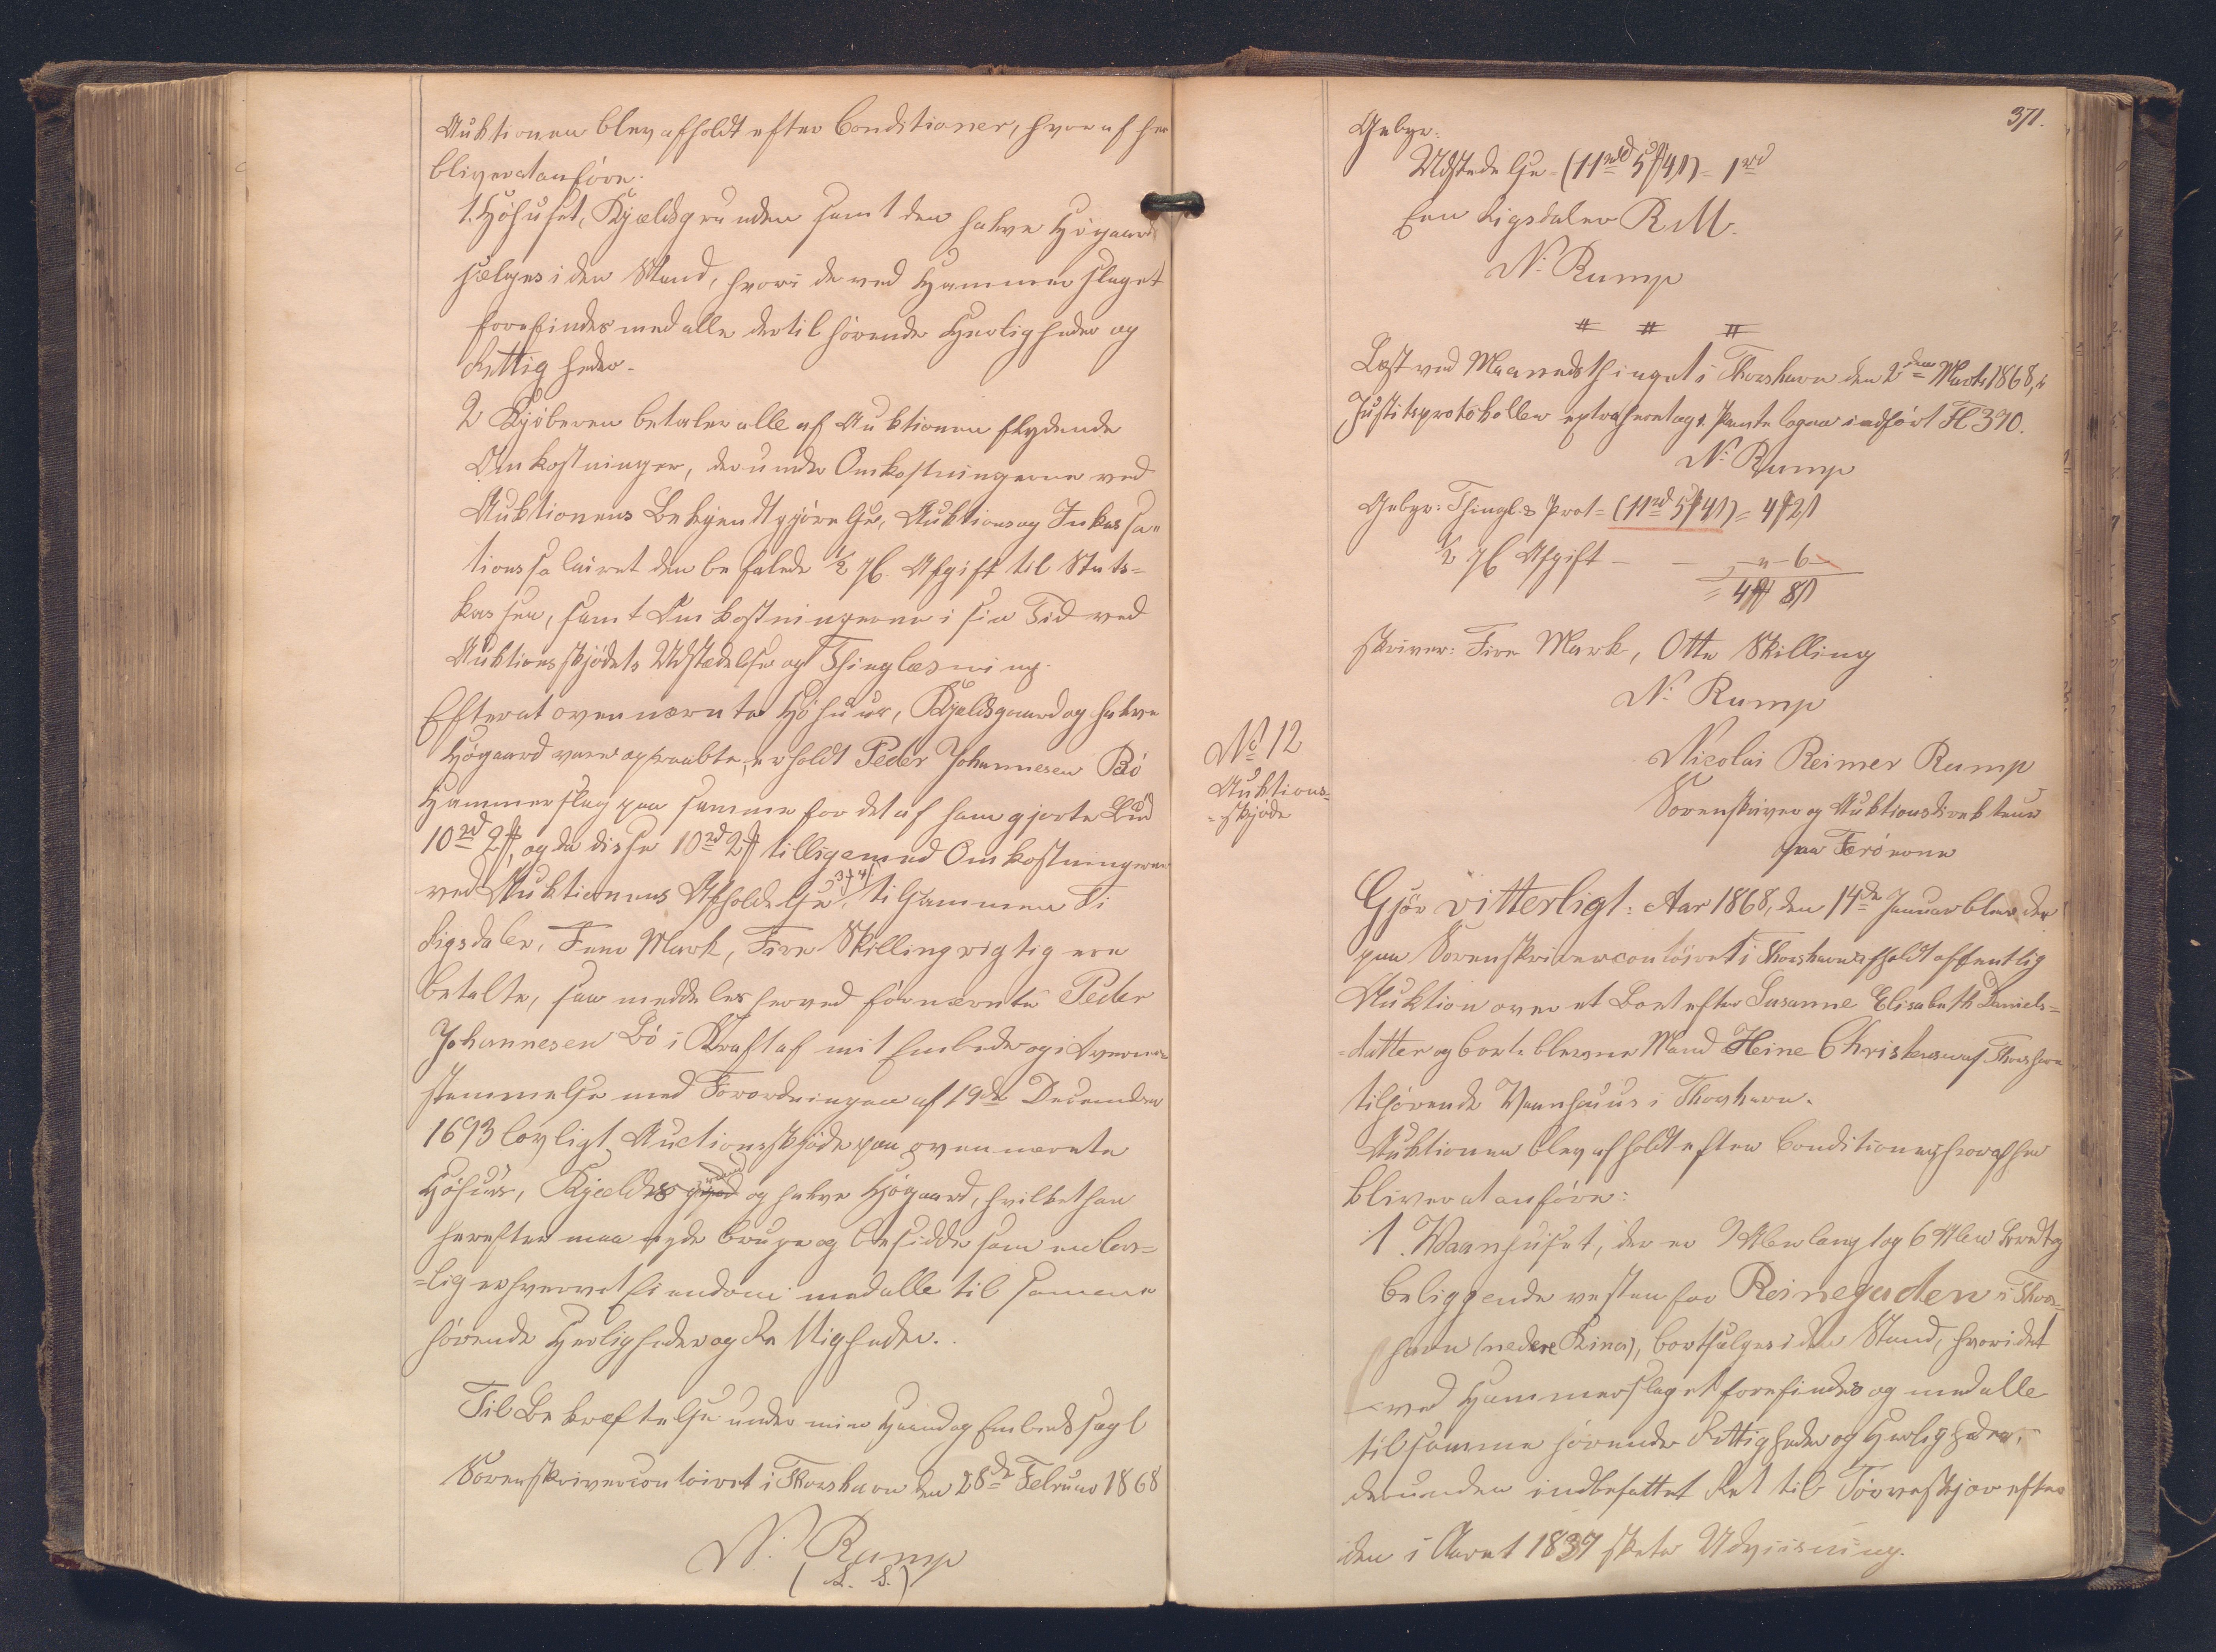 Auktionen blev afholdt efter Conditioner, hvoraf her
bliver at anføre:
1. Høhuset, Kjældsgrunden samt den halve Høgaard
sælges i den Stand, hvori de ved Hammerslaget
forefindes med alle dertil hørende Herligheder og
Rettigheder.
2 Kjøberen betaler alle af Auktionen flydende
Omkostninger, derunder Omkostningerne ved
Auktionens Bekjendtgjørelse, Auktions og Inkassa-
tionssalairet den befalede ½ % Afgift til Stats-
kassen, samt Omkostningerne i sin Tid ved
Auktionsskjødets Udstædelse og Thinglæsning.
Efter at ovennævnte Høhuus, Kjældsgaard og halve
Høgaard vare opraabte, erholdt Peder Johannesen Bø
Hammerslag paa samme for det af ham gjorte Bud
10rd 2ƒ, og da disse 10rd 2ƒ tilligemed Omkostningerne
ved Auktionens Afholdelse 3ƒ 4ƒ, tilsammen Ti
Rigsdaler, Fem Mark, Fire Skilling rigtig ere
betalte, saa meddeles herved fornævnte Peder
Johannesen Bø i Kraft af mit Embede og i Overens-
stemmelse med Forordningen af 19de December
1693 lovligt Auctionsskjøde paa ovennævnte
Høhuus, Kjælds grund og halve Høgaard, hvilket han
herefter maa nyde bruge og besidde som en lov-
=lig erhvervet Eiendom med alle til samme
hørende Herligheder og Rettigheder.
Til Bekræftelse under min Haand og Embedssegl
Sorenskrivercontoiret i Thorshavn den 28de Februar 1868
N. Rump
(L. S.)
371.
Gebyr:
Udstedelse (11rd 5ƒ 4ƒ) = 1rd
Een Rigsdaler R.M.
N. Rump
Læst ved Maanedsthinget i Thorshavn den 2den Marts 1868, i
Justitsprotokollen extraheret og i Pantebogen indført Fl 370.
N. Rump
Gebyr: Thingl. & Prot = (11rd 5ƒ 4ƒ) = 4ƒ 2ƒ
½ % Afgift - - „ - 6 -
= 4ƒ 8ƒ
skriver: Fire Mark, Otte Skilling
N. Rump
No 12
Auktions-
=skjøde
Nicolai Reimer Rump
Sorenskriver og Auktionsdirekteur
paa Færøerne
Gjør vitterligt: Aar 1868, den 14de Januar blev der
paa Sorenskrivercontoiret i Thorshavn afholdt offentlig
Auktion over et Boet efter Susanne Elisabeth Daniels-
=datter og bortblevne Mand Heine Christensen af Thorshavn
tilhørende Vaanhuus i Thorshavn.
Auktionen blev afholdt efter Conditioner, hvoraf her
bliver at anføre:
1. Vaanhuset, der er 9 Alen langt og 6 Alen bredt og
beliggende vesten for Reinegaden i Thors-
havn (nedere Reina), bortsælges i den Stand, hvori det
ved Hammerslaget forefindes og med alle
til samme hørende Rettigheder og Herligheder,
derunder indbefattet Ret til Tørveskjær efter
den i Aaret 1837 skete Udviisning.